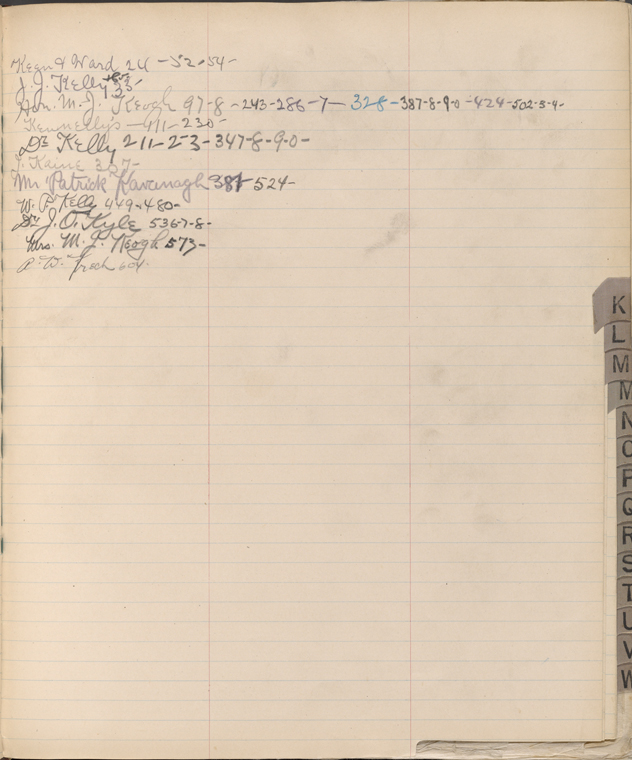 Kegn & Ward 24 - 52 - 54 -
J. J. Kelly 33 -
Hon. M. J. Keogh 97-8 - 243-286-7- 328-387-8-9-0-424-502-3-4-
Kennellys - 111-230-
Dr Kelly 211-2-3-347-8-9-0-
J. Kaine 357-
Mr Patrick Kavanagh 381-524-
W. P. Kelly 449-480-
Dr J. O. Kyle 536-7-8-
Mrs. M. J. Keogh 573-
P. W. 604.
K
L
M
M
N
O
P
Q
R
S
T
U
V
W